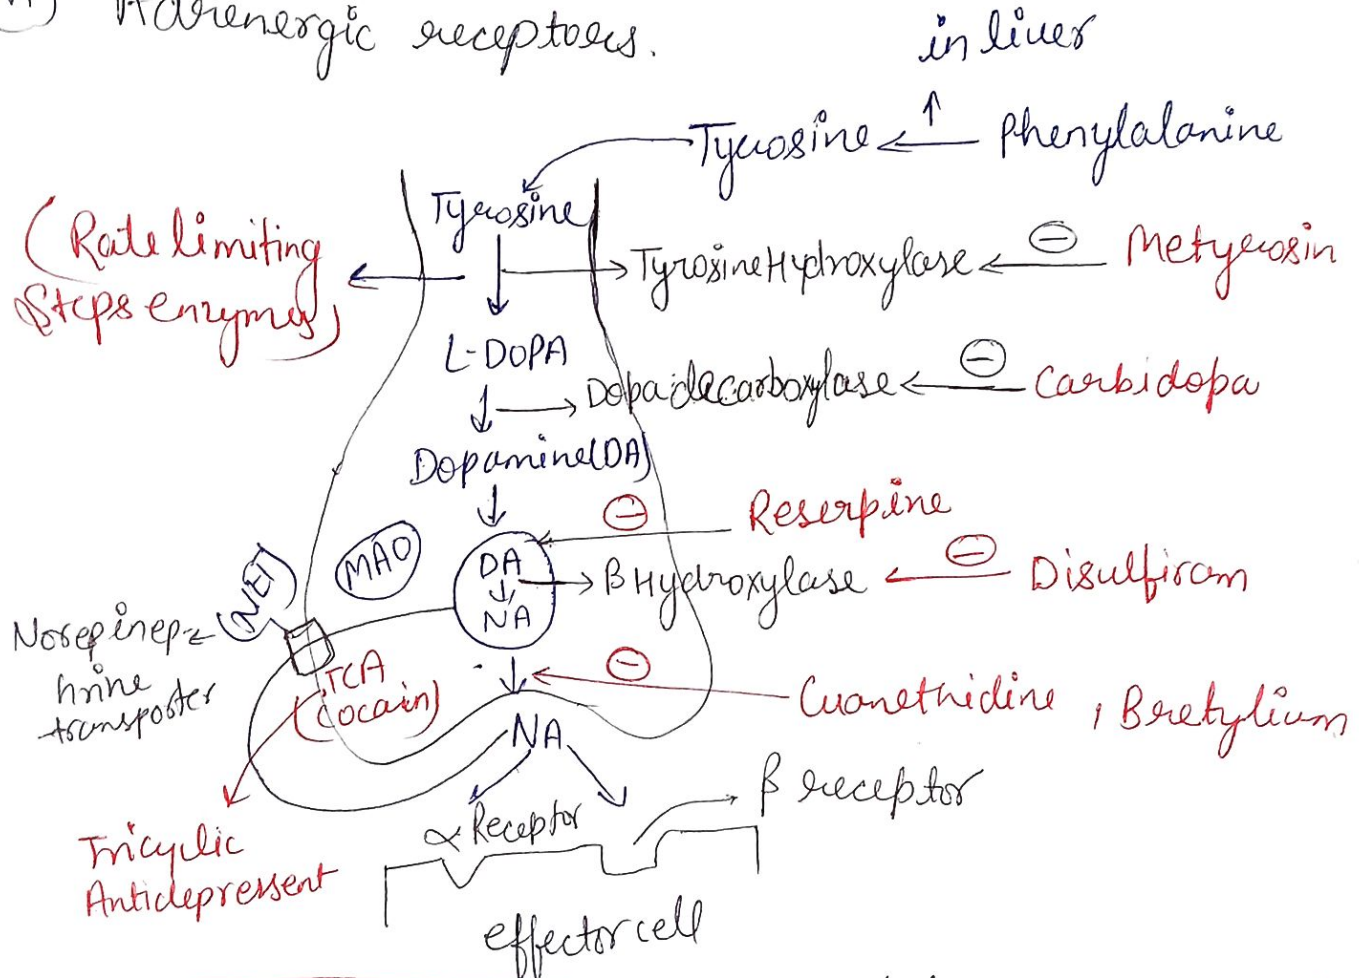 Adrenergic receptors.
in liver
↑
Tyrosine ← Phenylalanine
Tyrosine
(Rate limiting
Steps enzymes)
Tyrosine Hydroxylase ← ⊖ Metyrosin
L-DOPA
Dopa decarboxylase ← ⊖ Carbidopa
Dopamine (DA)
⊖ Reserpine
MAO
DA
↓
NA
β Hydroxylase ← ⊖ Disulfiram
(NET)
Norepinep-
hrine
transporter
TCA
(cocain)
⊖
Guanethidine, Bretylium
NA
α Receptor
β receptor
Tricyclic
Antidepressent
effector cell